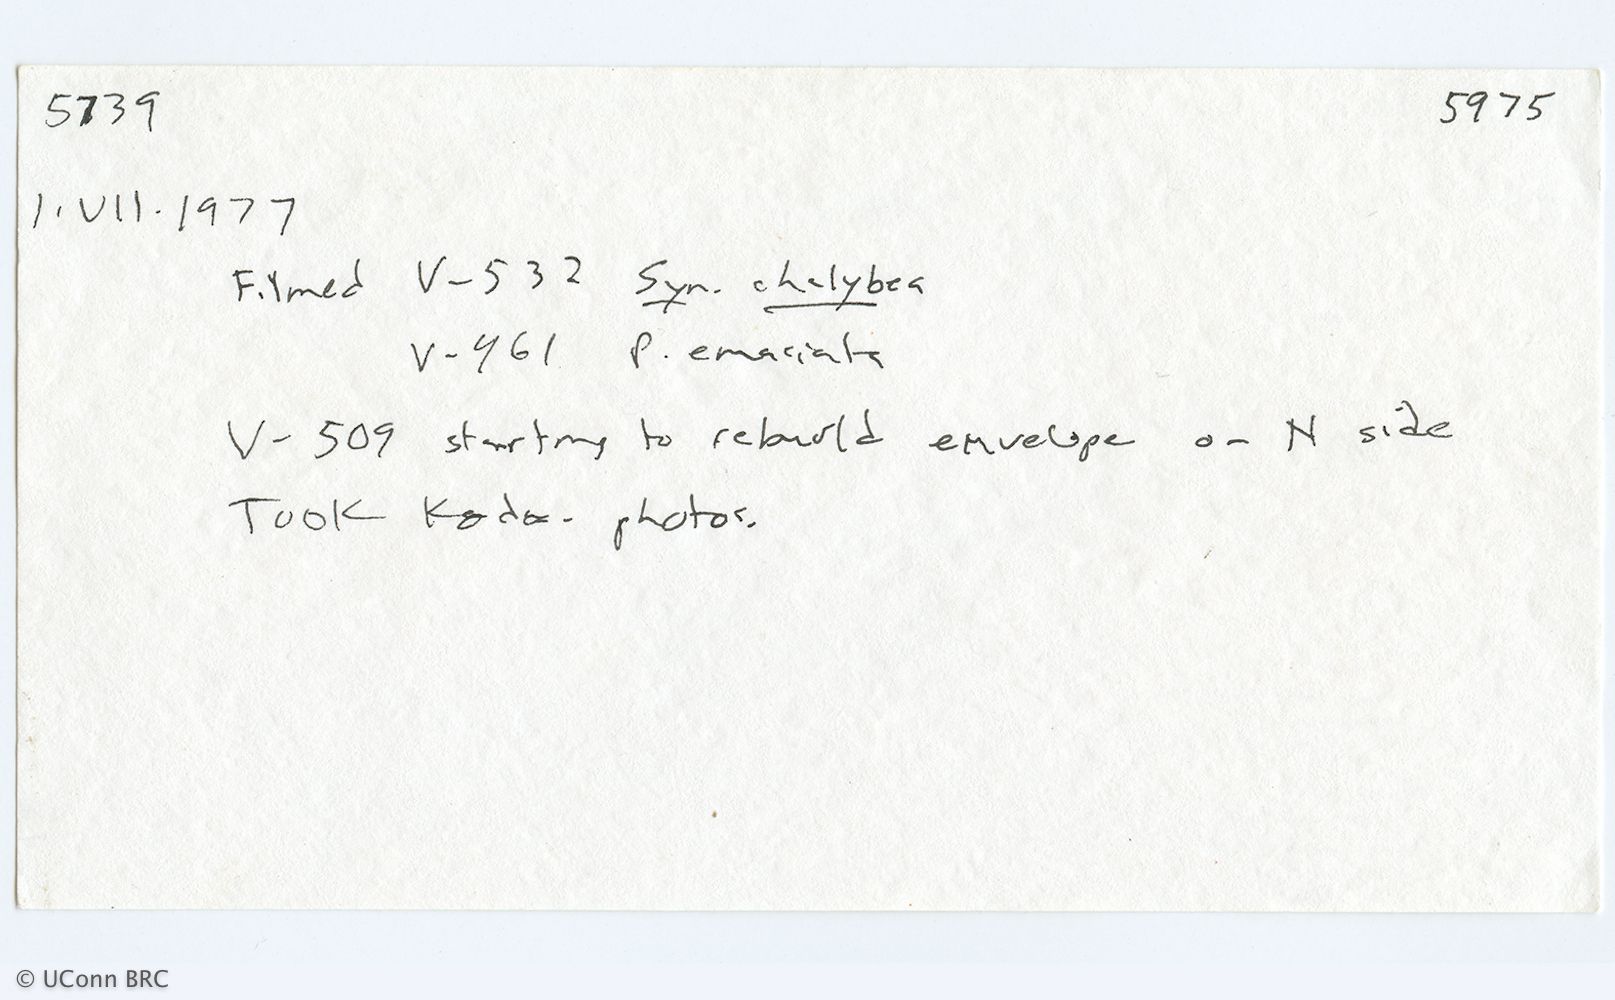 5739 5975
1.VII.1977
Filmed V-532 Syn. chalybea
V-461 P. emaciata
V-509 starting to rebuild envelope on N side
Took photos.
© UConn BRC